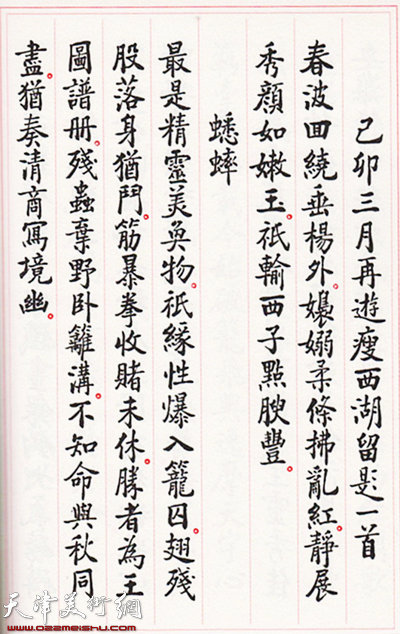 己卯三月再遊瘦西湖留題一首
春波回繞垂楊外。嬝嫋柔條拂亂紅。靜展
秀顏如嫩玉。祇輸西子點腴豐。
蟋蟀
最是精靈美奐物。祇緣性爆入籠囚。翅殘
股落身猶鬥。筋暴拳收賭未休。勝者為王
圖譜册。殘蟲棄野卧籬溝。不知命與秋同
盡。猶奏清商寫境幽。
天津美術網
www.022meishu.com